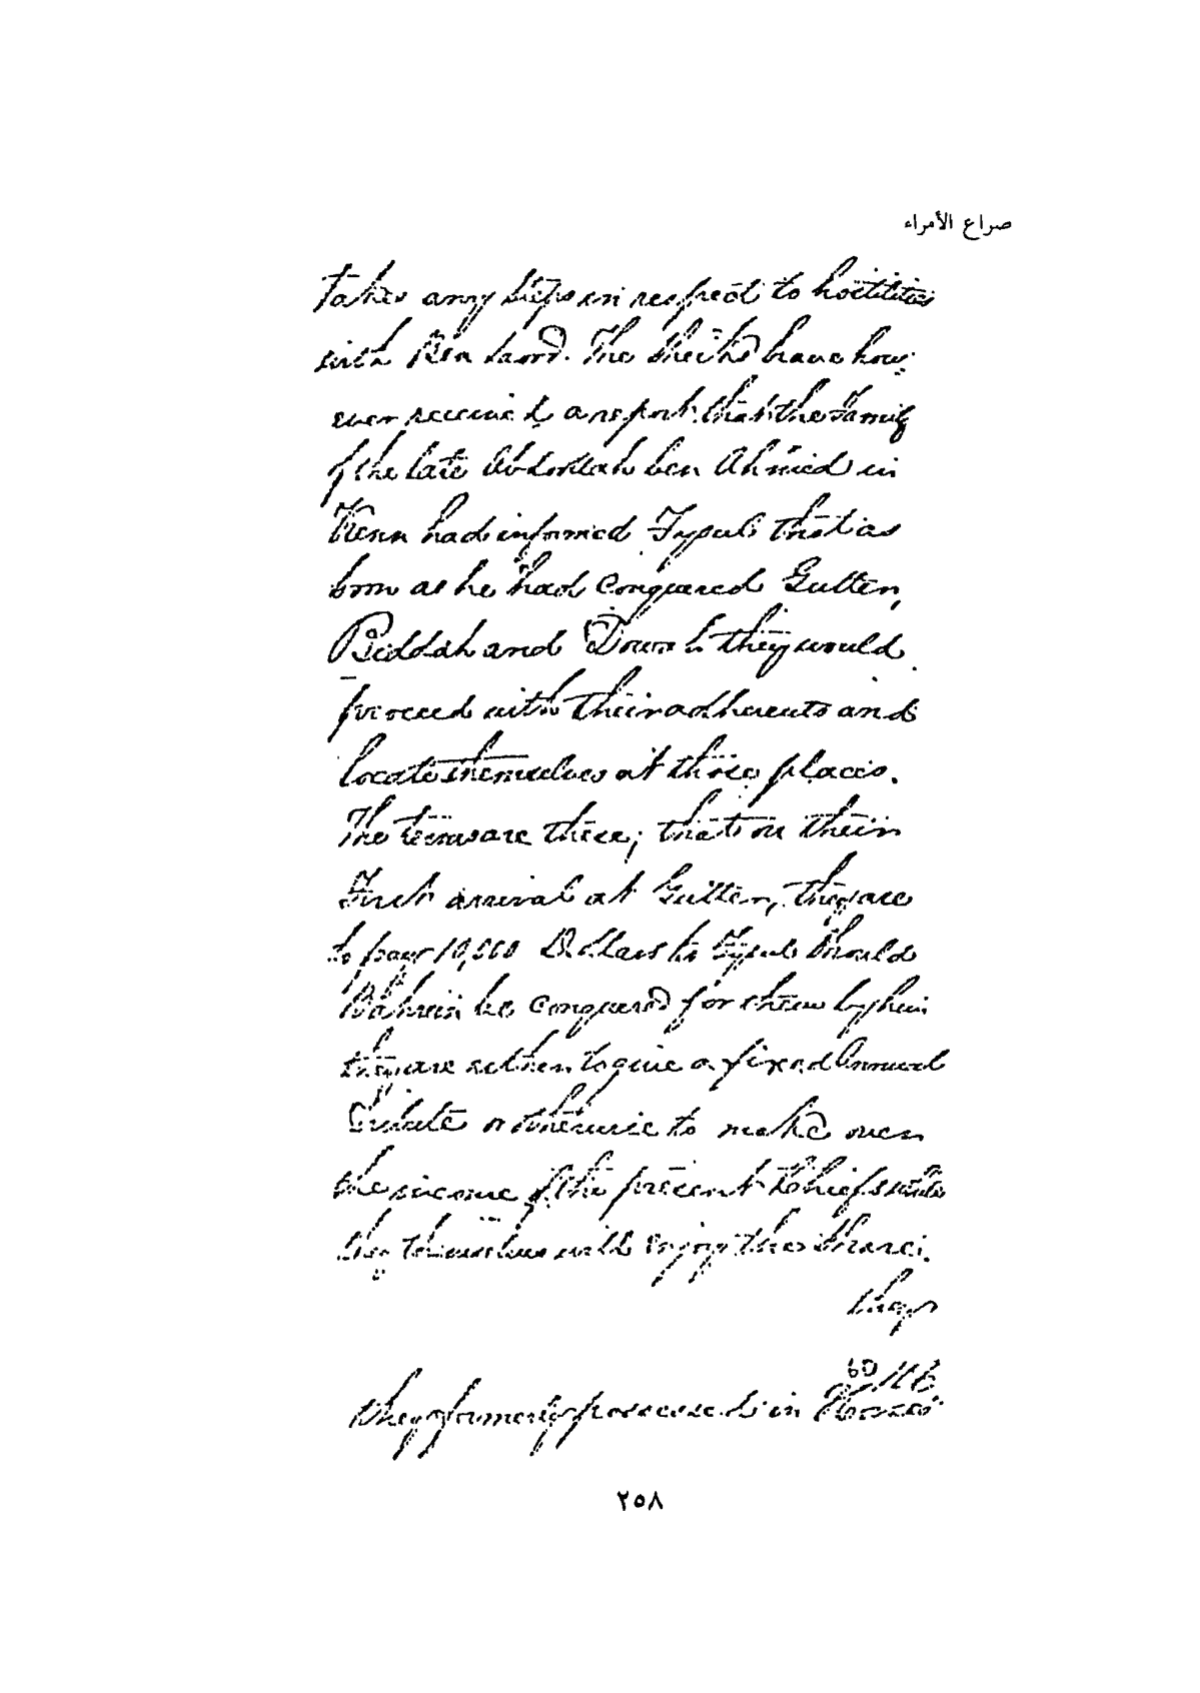 صراع الأمراء
take any steps in respect to hostilities
with Ben Saood. The Sheikhs have how-
ever received a report that the Family
of the late Abdollah ben Ahmed in
Kenn had informed Fysul that as
soon as he had conquered Gutter,
Biddah and they would
proceed with their adherents and
locate themselves at those places.
The terms are these; that on their
First arrival at Gutter, they are
to pay 10,000 Dollars to Fysul should
Bahrein be conquered for them by him
they are either to give a fixed Annual
Tribute or otherwise to make over
the income of the present Chiefs while
they themselves will enjoy the
they
they formerly possessed in
٢٥٨